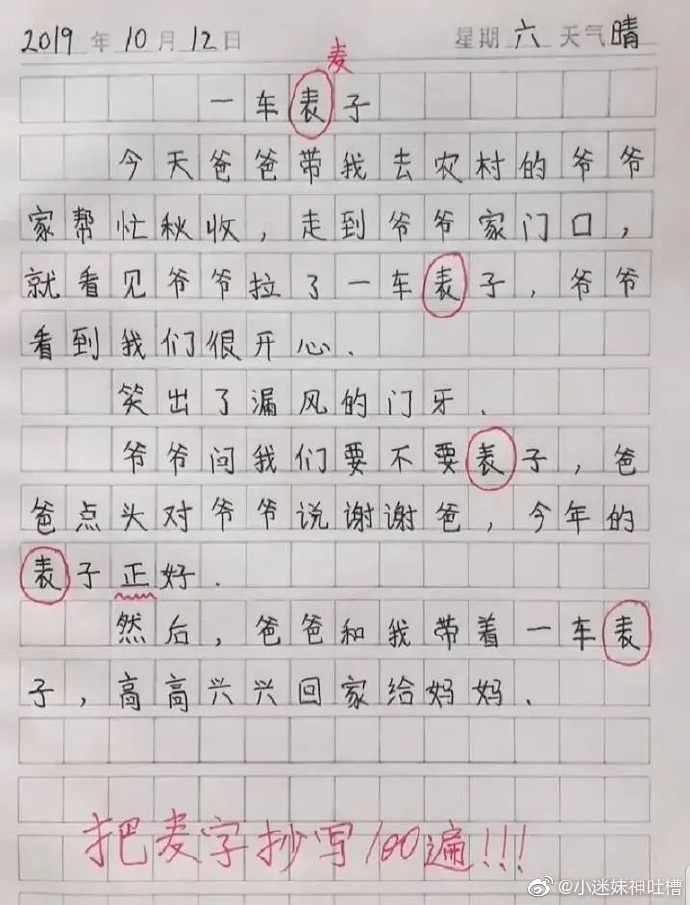 2019年10月12日 星期六 天气晴
麦
一车表子
今天爸爸带我去农村的爷爷
家帮忙秋收，走到爷爷家门口，
就看见爷爷拉了一车表子，爷爷
看到我们很开心.
笑出了漏风的门牙.
爷爷问我们要不要表子，爸
爸点头对爷爷说谢谢爸，今年的
表子正好.
然后，爸爸和我带着一车表
子，高高兴兴回家给妈妈.
把麦字抄写100遍!!!
@小迷妹神吐槽